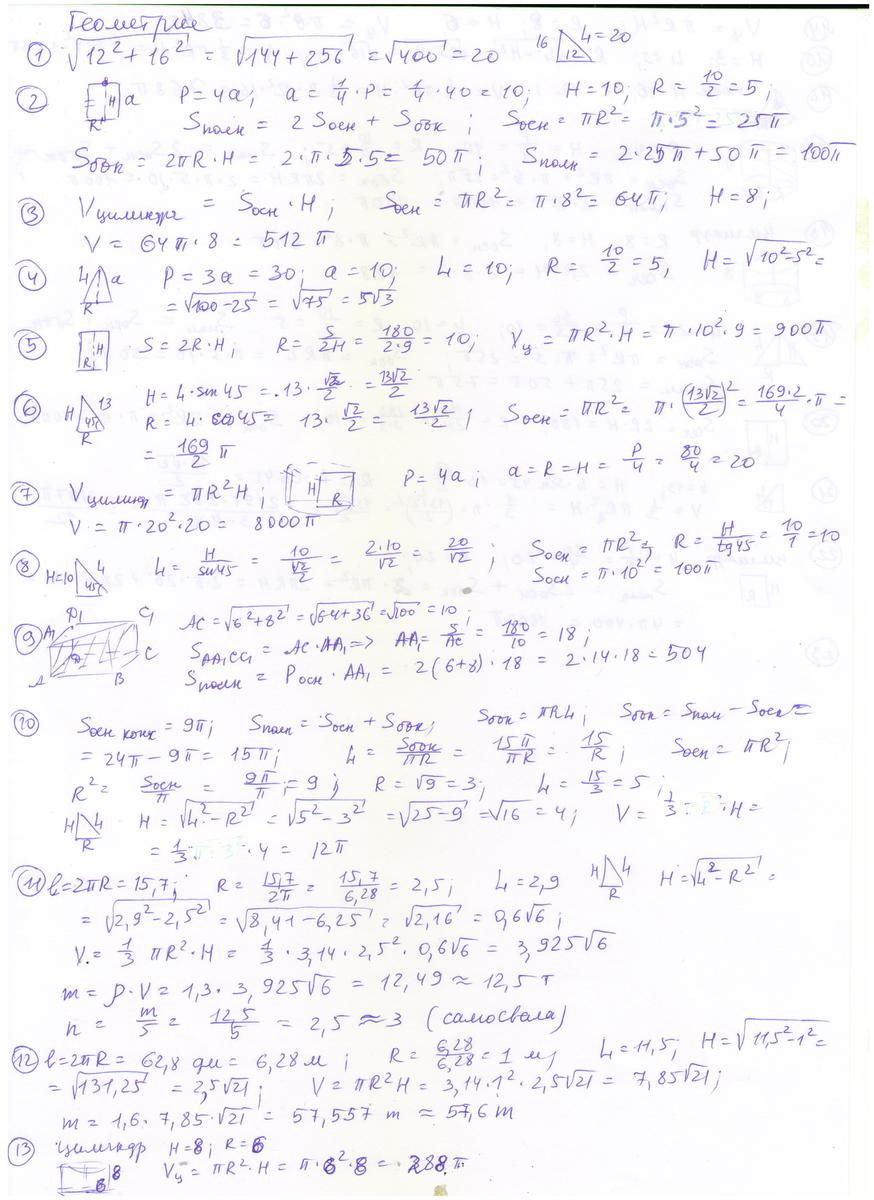 Геометрия
① √(12² + 16²) = √(144 + 256) = √400 = 20   16 12 L = 20
② H a R   P = 4a; a = 1/4 · P = 1/4 · 40 = 10; H = 10; R = 10/2 = 5;
Sполн = 2 Sосн + Sбок; Sосн = πR² = π·5² = 25π
Sбок = 2πR·H = 2·π·5·5 = 50π; Sполн = 2·25π + 50π = 100π
③ Vцилиндра = Sосн·H; Sосн = πR² = π·8² = 64π; H = 8;
V = 64π·8 = 512π
④ L a R   P = 3a = 30; a = 10; L = 10; R = 10/2 = 5, H = √(10²-5²) =
= √(100-25) = √75 = 5√3
⑤ R H   S = 2R·H; R = S/2H = 180/2·9 = 10; Vц = πR²·H = π·10²·9 = 900π
⑥ H 13 45 R   H = L·sin45 = 13·√2/2 = 13√2/2
R = L·cos45 = 13·√2/2 = 13√2/2; Sосн = πR² = π·(13√2/2)² = 169·2/4·π =
= 169/2 π
⑦ Vцилинд = πR²H; H R   P = 4a; a = R = H = P/4 = 80/4 = 20
V = π·20²·20 = 8000π
⑧ H=10 L 45   L = H/sin45 = 10/(√2/2) = 2·10/√2 = 20/√2; Sосн = πR²; R = H/tg45 = 10/1 = 10
Sосн = π·10² = 100π
⑨ A₁ D₁ C₁ A B C D   AC = √(6²+8²) = √(64+36) = √100 = 10;
SAA₁CC₁ = AC·AA₁ => AA₁ = S/AC = 180/10 = 18;
Sполн = Pосн·AA₁ = 2(6+8)·18 = 2·14·18 = 504
⑩ Sосн кон = 9π; Sполн = Sосн + Sбок; Sбок = πRL; Sбок = Sполн − Sосн =
= 24π − 9π = 15π; L = Sбок/πR = 15π/πR = 15/R; Sосн = πR²;
R² = Sосн/π = 9π/π = 9; R = √9 = 3; L = 15/3 = 5;
H L R   H = √(L²−R²) = √(5²−3²) = √(25−9) = √16 = 4; V = 1/3·πR²·H =
= 1/3·π·3²·4 = 12π
⑪ l = 2πR = 15,7; R = 15,7/2π = 15,7/6,28 = 2,5; L = 2,9   H L R   H = √(L²−R²) =
= √(2,9²−2,5²) = √(8,41−6,25) = √2,16 = 0,6√6;
V = 1/3 πR²·H = 1/3·3,14·2,5²·0,6√6 = 3,925√6
m = ρ·V = 1,3·3,925√6 = 12,49 ≈ 12,5 т
n = m/5 = 12,5/5 = 2,5 ≈ 3 (самосвала)
⑫ l = 2πR = 62,8 дм = 6,28 м; R = 6,28/6,28 = 1 м; L = 11,5; H = √(11,5²−1²) =
= √131,25 = 2,5√21; V = πR²H = 3,14·1²·2,5√21 = 7,85√21;
m = 1,6·7,85·√21 = 57,557 т ≈ 57,6 т
⑬ цилиндр H = 8; R = 6
8 6   Vц = πR²·H = π·6²·8 = 288π